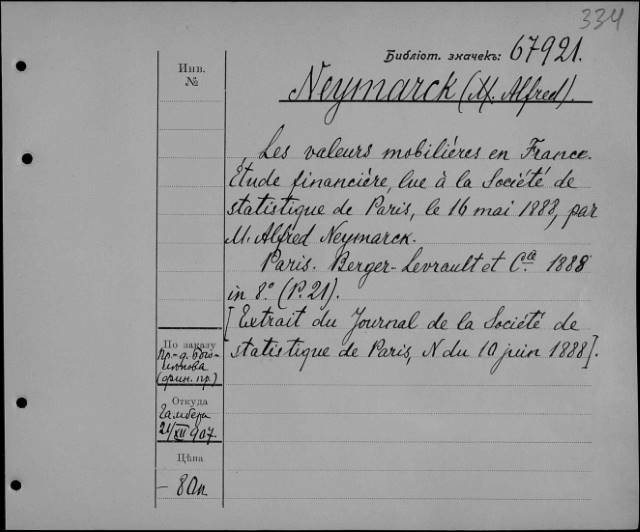 334
Библіот. значекъ: 67921.
Инв.
№
Neymarck (M. Alfred).
Les valeurs mobilières en France.
Etude financière, lue à la Société de
statistique de Paris, le 16 mai 1888, par
M. Alfred Neymarck.
Paris. Berger-Levrault et Cie 1888
in 8° (P. 21).
[Extrait du Journal de la Société de
statistique de Paris, N du 10 juin 1888].
По заказу
пр.-д. Бого-
лѣпова
(фин. пр.)
Откуда
Гамбера
21/XII 907.
Цѣна
— 80